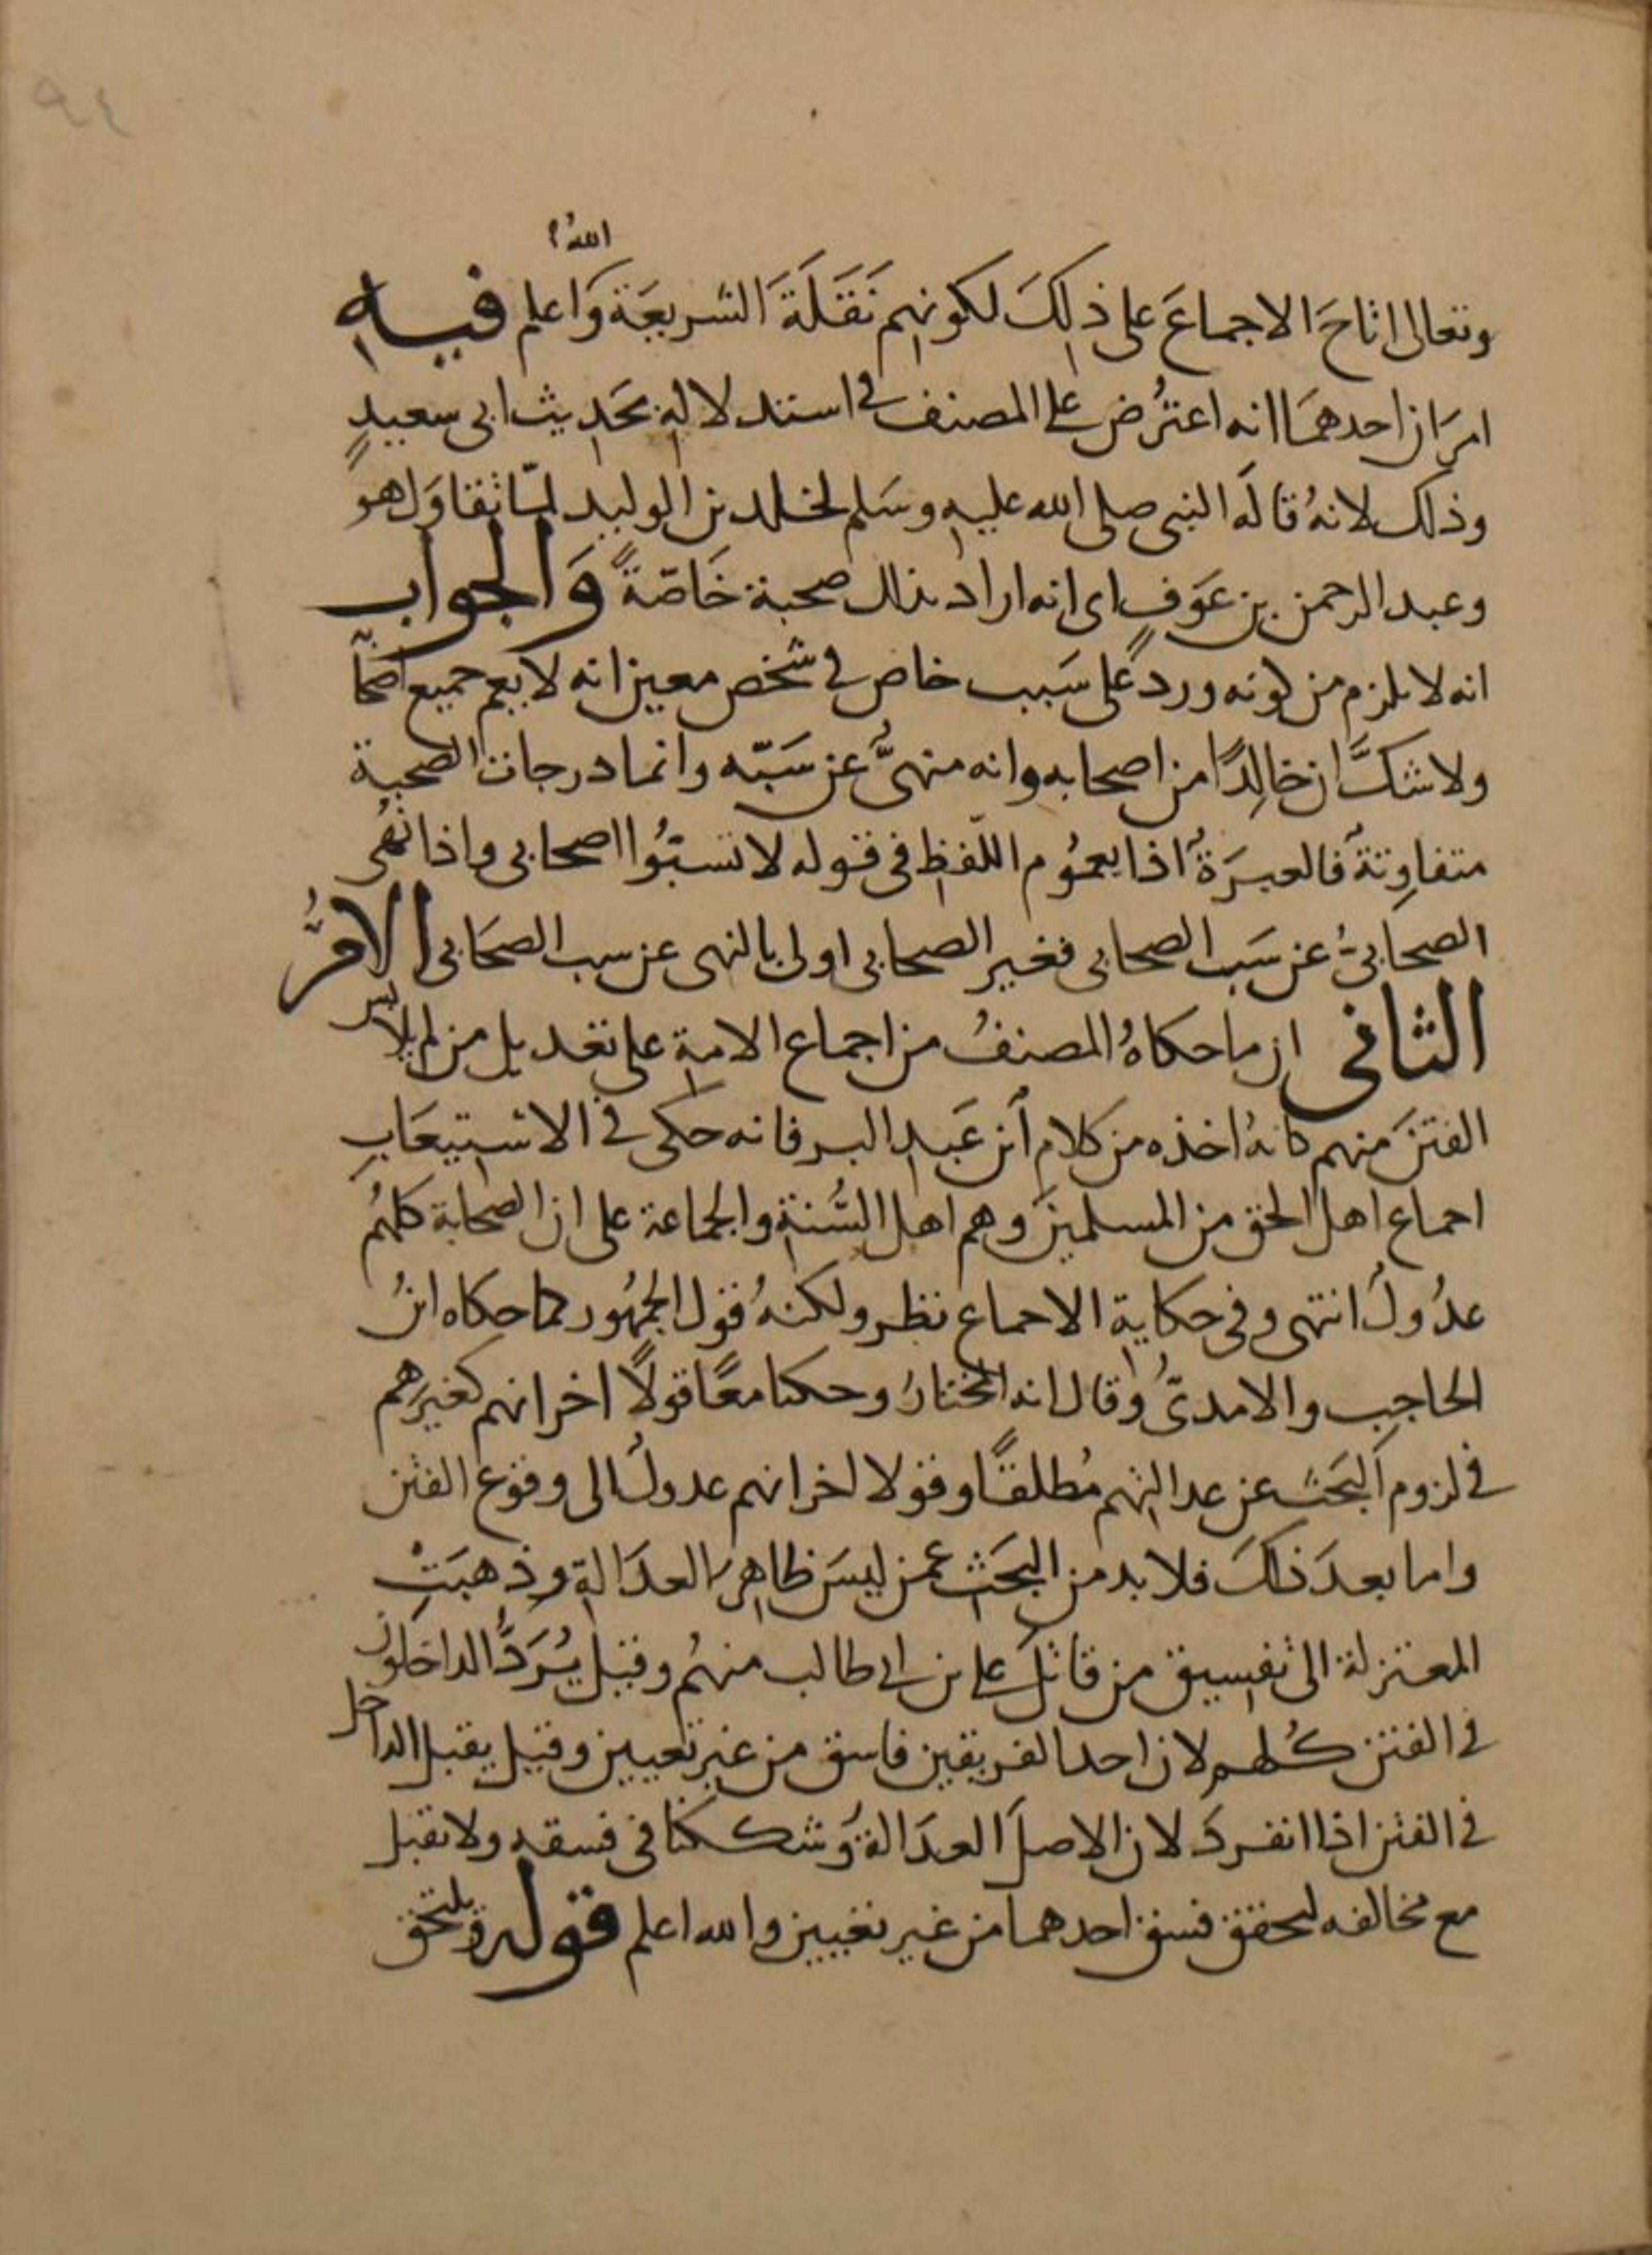 ٩٤
الله
وتعالى اتاح الاجماع على ذلك لكونهم نقلة الشريعة واعلم فيه
امران احدهما انه اعترض على المصنف في استدلاله بحديث ابى سعيد
وذلك لانه قاله النبى صلى الله عليه وسلم لخلد بن الوليد لما تقاول هو
وعبد الرحمن بن عوف اى انه اراد بذلك صحبة خاصة والجواب
انه لا يلزم من كونه ورد على سبب خاص في شخص معين انه لا يعم جميع اصحا
ولا شك ان خالدا من اصحابه وانه منهى عن سبه وانما درجات الصحبة
متفاوتة فالعبرة اذا بعموم اللفظ فى قوله لا تسبوا اصحابى واذا نهى
الصحابى عن سب الصحابى فغير الصحابى اولى بالنهى عن سب الصحابى الامر
الثانى ان ما حكاه المصنف من اجماع الامة على تعديل من لم يلابس
الفتن منهم كانه اخذه من كلام ابن عبد البر فانه حكى في الاستيعاب
اجماع اهل الحق من المسلمين وهم اهل السنة والجماعة على ان الصحابة كلهم
عدول انتهى وفى حكاية الاجماع نظر ولكنه قول الجمهور كما حكاه ابن
الحاجب والامدى وقال انه المختار وحكيا معا قولا اخر انهم كغيرهم
في لزوم البحث عن عدالتهم مطلقا وقولا اخر انهم عدول الى وقوع الفتن
واما بعد ذلك فلا بد من البحث عمن ليس ظاهر العدالة وذهبت
المعتزلة الى تفسيق من قاتل على بن ابى طالب منهم وقيل يرد الداخلون
في الفتن كلهم لان احد الفريقين فاسق من غير تعيين وقيل يقبل الداخل
في الفتن اذا انفرد لان الاصل العدالة وشككنا فى فسقه ولا يقبل
مع مخالفه لتحقق فسق احدهما من غير تعيين والله اعلم قوله ويلتحق